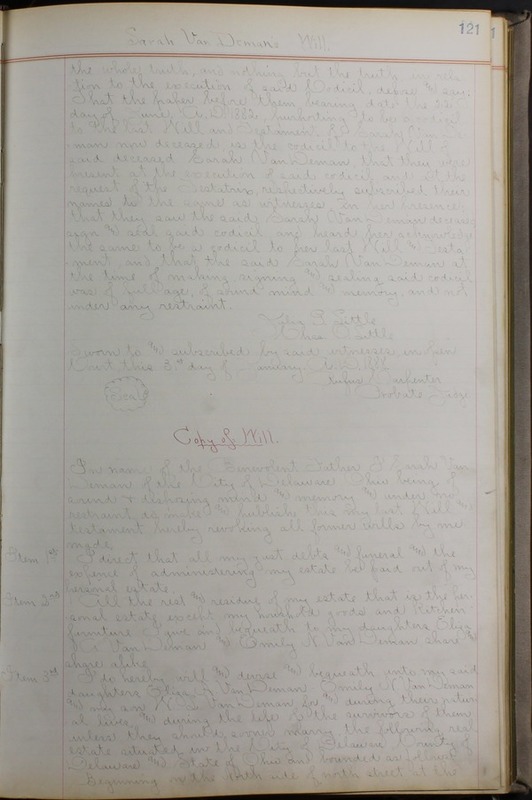 121
Sarah Van Deman's Will.
the whole truth, and nothing but the truth in rela
tion to the execution of said Codicil, depose & say:
That the paper before them bearing date the
day of June A.D. 1882, purporting to be a codicil
to the last Will and Testament of Sarah Van De
man now deceased is the codicil to the Will of
said deceased Sarah Van Deman that they were
present at the execution of said codicil and at the
request of the Testatrix, respectively subscribed their
names to the same as witnesses in her presence
that they saw the said Sarah Van Deman
sign & seal said codicil and heard her acknowledge
the same to be a codicil to her last Will & Testa
ment and that the said Sarah Van Deman at
the time of making, signing & sealing said codicil
was of full age, of sound mind & memory, and not
under any restraint.
Little
Little
Sworn to & subscribed by said witnesses in open
Court this 3rd day of January A.D.
Rufus Carpenter
Seal
Probate Judge
Copy of Will.
In name of the Benevolent Father I Sarah Van
Deman of the City of Delaware Ohio being of
sound & disposing mind & memory & under no
restraint do make & publish this my last Will &
testament hereby revoking all former wills by me
made.
Item 1st I direct that all my just debts & funeral & the
expense of administering my estate be paid out of my
personal estate.
Item 2nd All the rest & residue of my estate that is the per
sonal estate except my household goods and Kitchen
furniture I give and bequeath to my daughters Eliza
A. Van Deman & Emily N. Van Deman share &
share alike.
Item 3rd I do hereby will & devise & bequeath unto my said
daughters Eliza A. Van Deman Emily N. Van Deman
& my son Van Deman for & during their natur
al lives, & during the life of the survivors of them
unless they should sooner marry the following real
estate situated in the City of Delaware County of
Delaware & State of Ohio and bounded as follows:
Beginning on the North side of north street at the